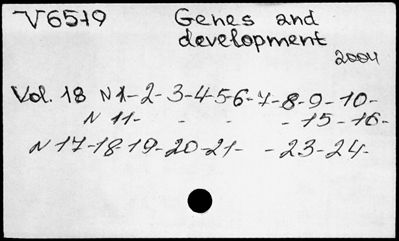 V6519 Genes and
development
2004
Vol. 18 N 1-2-3-4-5-6-7-8-9-10-
N 11- - - -15-16-
N 17-18-19-20-21- -23-24-